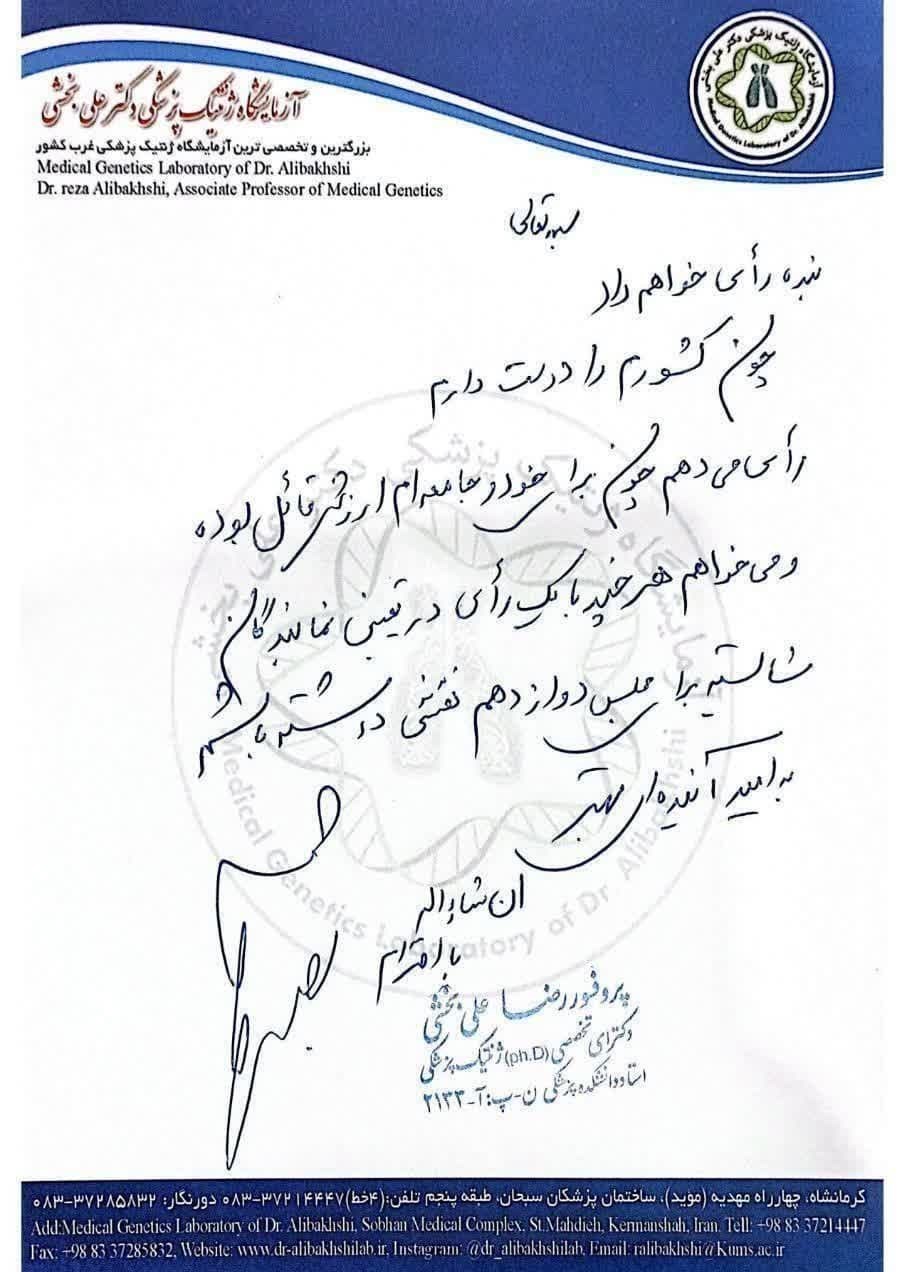 آزمایشگاه ژنتیک پزشکی دکتر علی بخشی
بزرگترین و تخصصی ترین آزمایشگاه ژنتیک پزشکی غرب کشور
Medical Genetics Laboratory of Dr. Alibakhshi
Dr. reza Alibakhshi, Associate Professor of Medical Genetics
آزمایشگاه ژنتیک پزشکی دکتر علی بخشی
Medical Genetics Laboratory of Dr. Alibakhshi
بسمه تعالی
بنده رأی خواهم داد
چون کشورم را دوست دارم
رأی می دهم چون برای خود و جامعه ام ارزش قائل بوده
و می خواهم هر چند با یک رأی در تعیین نمایندگان
شایسته برای مجلس دوازدهم نقشی داشته باشم
به امید آینده ای بهتر
ان شاء الله
با احترام
پروفسور رضا علی بخشی
دکترای تخصصی (ph.D) ژنتیک پزشکی
استاد دانشکده پزشکی ن-پ: آ-۲۱۳۳
آزمایشگاه ژنتیک پزشکی دکتر علی بخشی
Medical Genetics Laboratory of Dr. Alibakhshi
کرمانشاه، چهارراه مهدیه (موید)، ساختمان پزشکان سبحان، طبقه پنجم تلفن:(۴خط)۳۷۲۱۴۴۴۷-۰۸۳ دورنگار: ۳۷۲۸۵۸۳۲-۰۸۳
Add:Medical Genetics Laboratory of Dr. Alibakhshi, Sobhan Medical Complex, St.Mahdieh, Kermanshah, Iran. Tell: +98 83 37214447
Fax: +98 83 37285832, Website: www.dr-alibakhshilab.ir, Instagram: @dr_alibakhshilab, Email: ralibakhshi@Kums.ac.ir